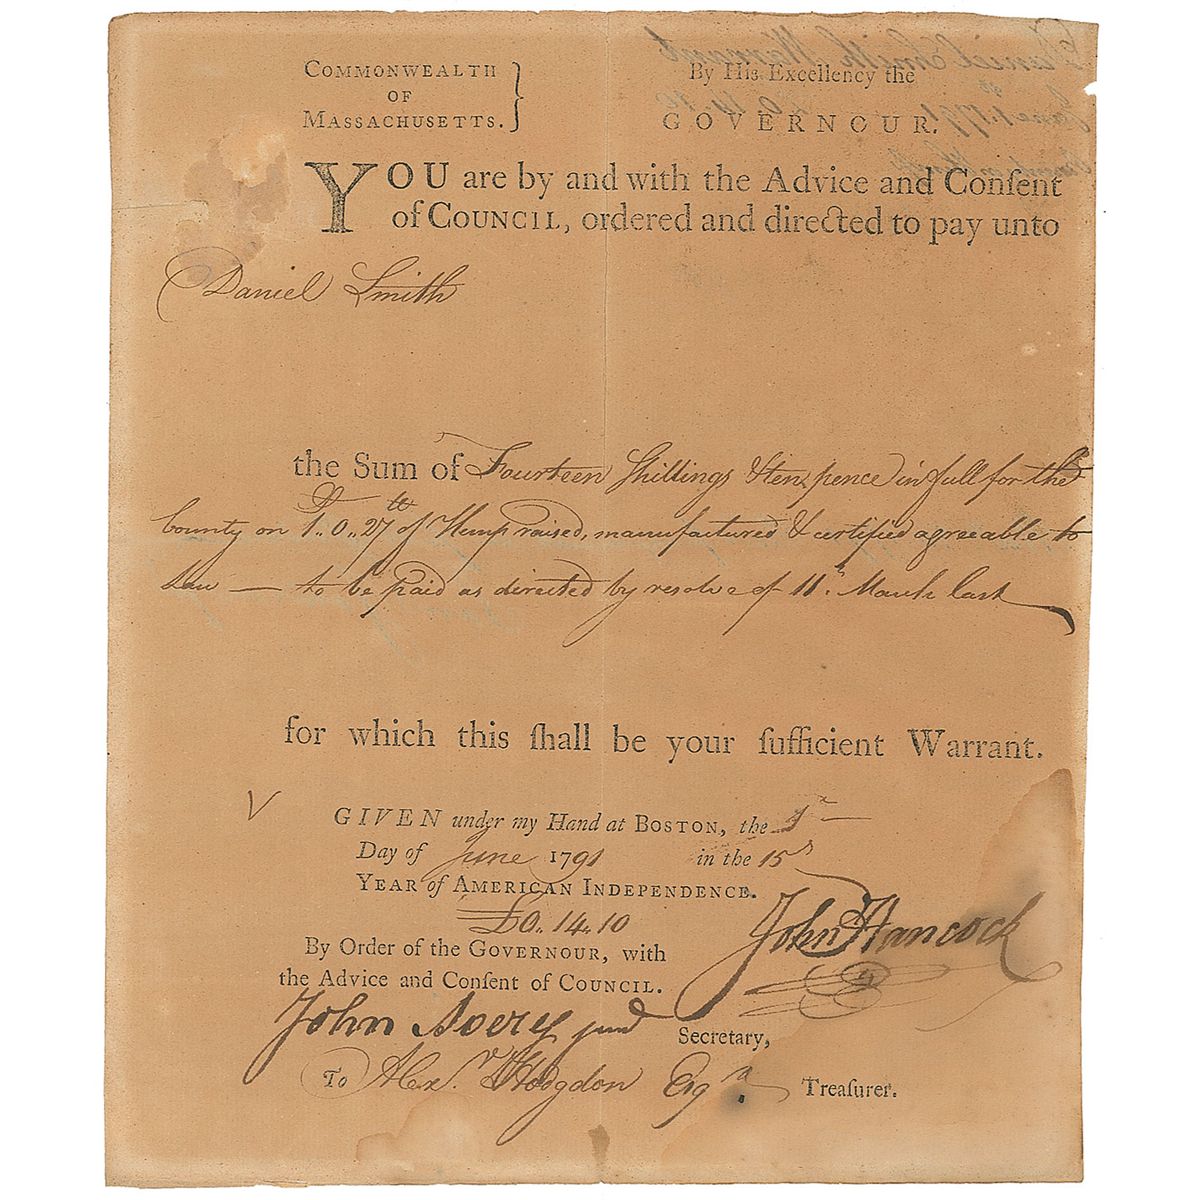 COMMONWEALTH
OF
MASSACHUSETTS.
By His Excellency the
GOVERNOUR.
YOU are by and with the Advice and Conſent
of COUNCIL, ordered and directed to pay unto
Daniel Smith
the Sum of Fourteen Shillings & ten pence in full for the
bounty on 1..0..27 lb of Hemp raised, manufactured & certified agreeable to
Law — to be paid as directed by resolve of 11th March last
for which this ſhall be your ſufficient Warrant.
V
GIVEN under my Hand at BOSTON, the 1st
Day of June 1791 in the 15th
YEAR of AMERICAN INDEPENDENCE.
£0..14..10
John Hancock
By Order of the GOVERNOUR, with
the Advice and Conſent of COUNCIL.
John Avery junr Secretary,
To Alexr Hodgdon Esqr. Treaſurer.
Daniel Smith Warrant
June 1. 1791 £0 14 10